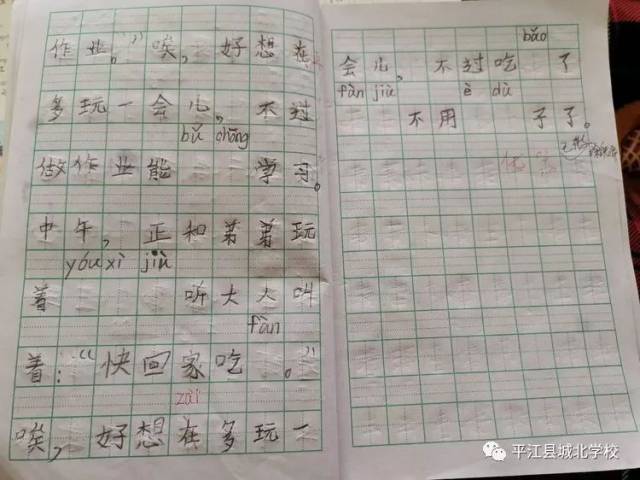 作业。”唉，好想在
多玩一会儿，不过
bǔ chōng
做作业能 学习。
中午，正和弟弟玩
yóu xì jiù
着 听大人叫
fàn
着：“快回家吃 。”
zài
唉，好想在多玩一
bǎo
会儿，不过吃 了
fàn jiù è dù
不用 子了。
平江县城北学校